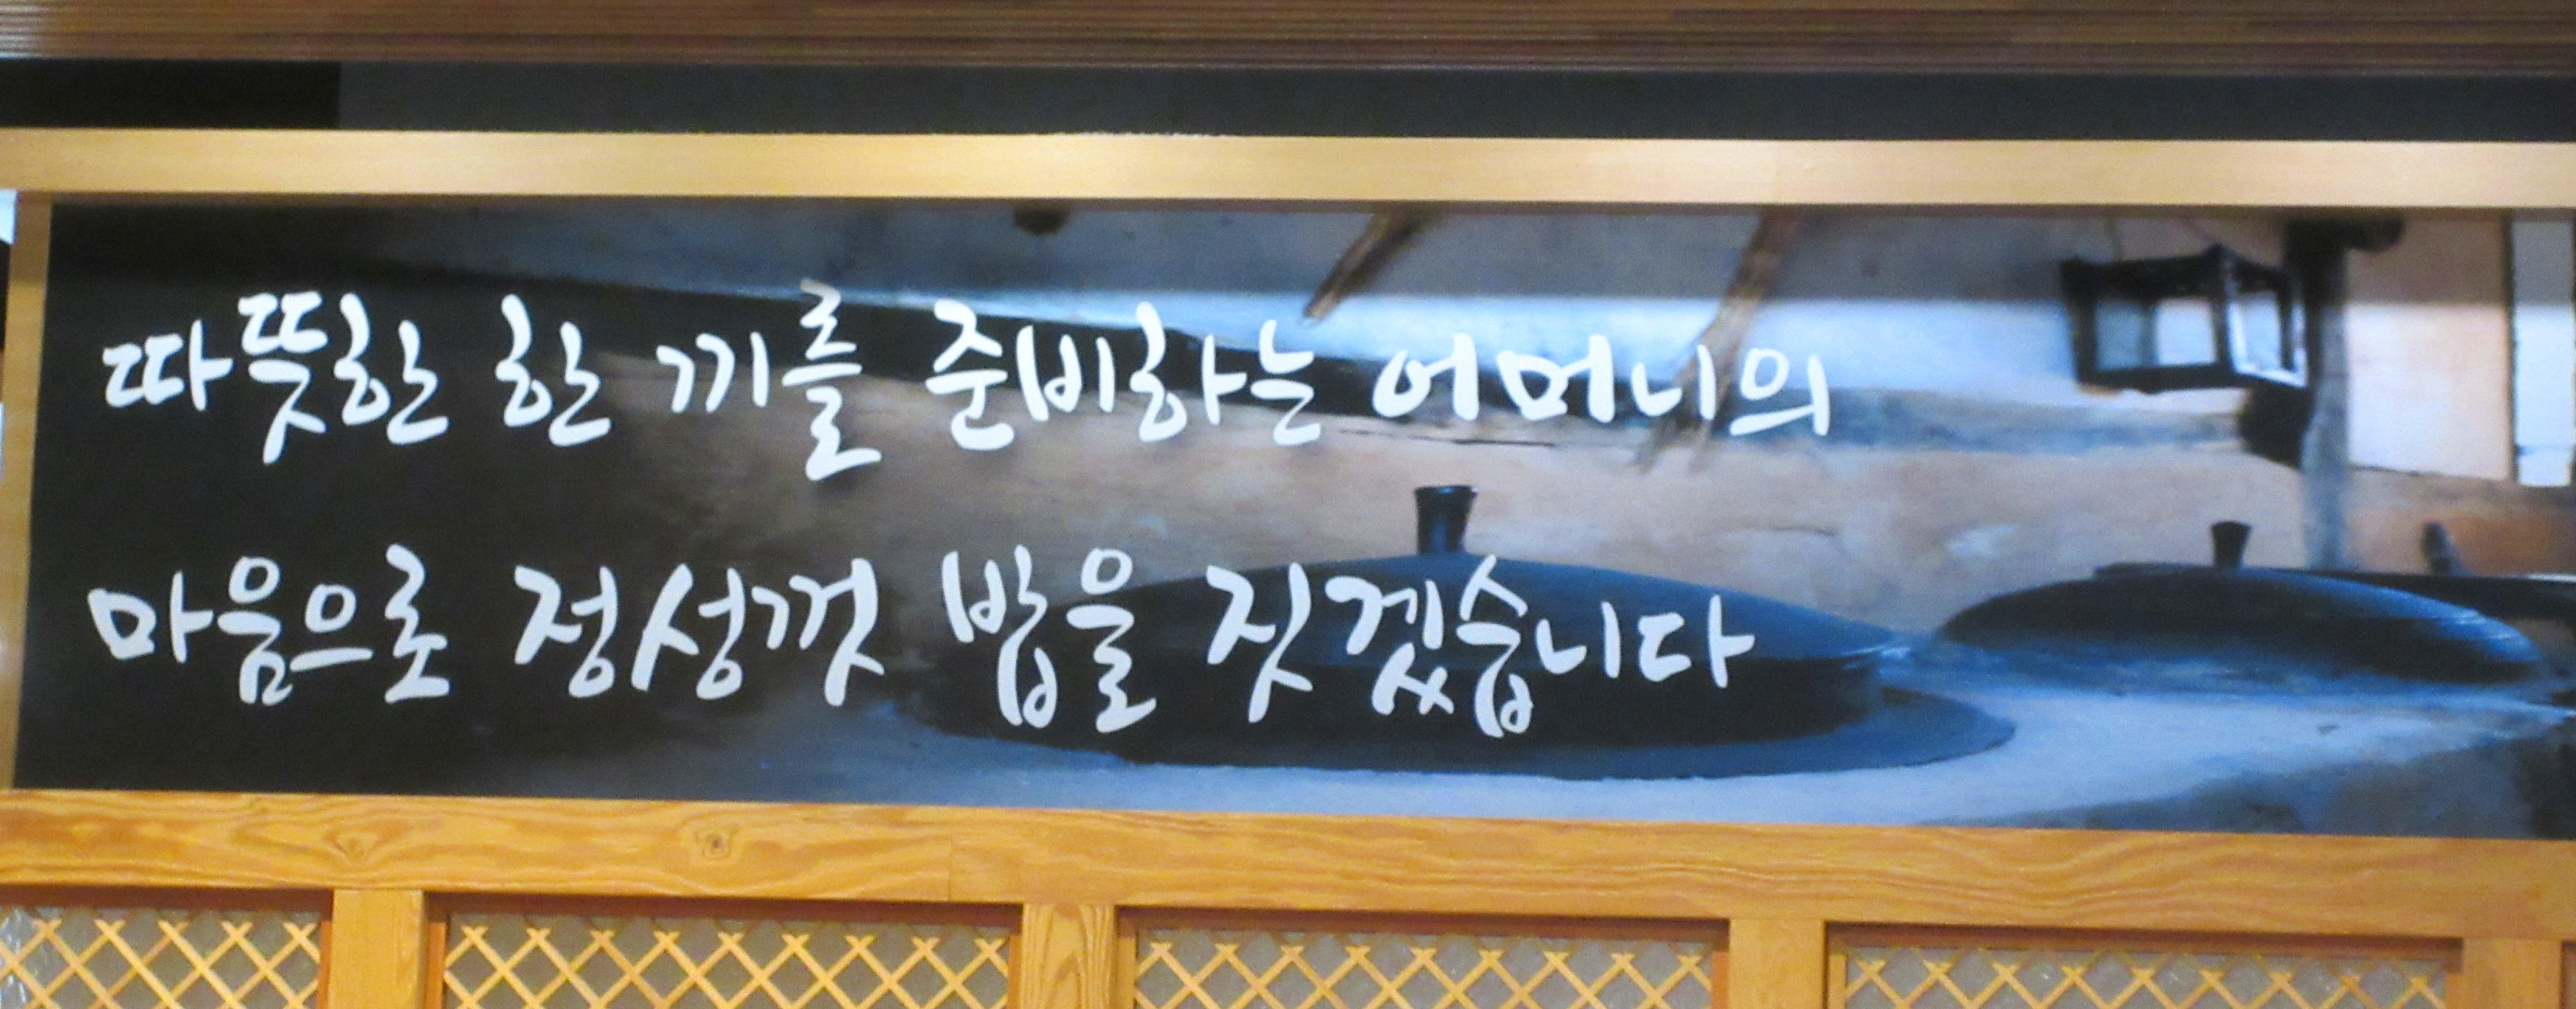 따뜻한 한 끼를 준비하는 어머니의
마음으로 정성껏 밥을 짓겠습니다